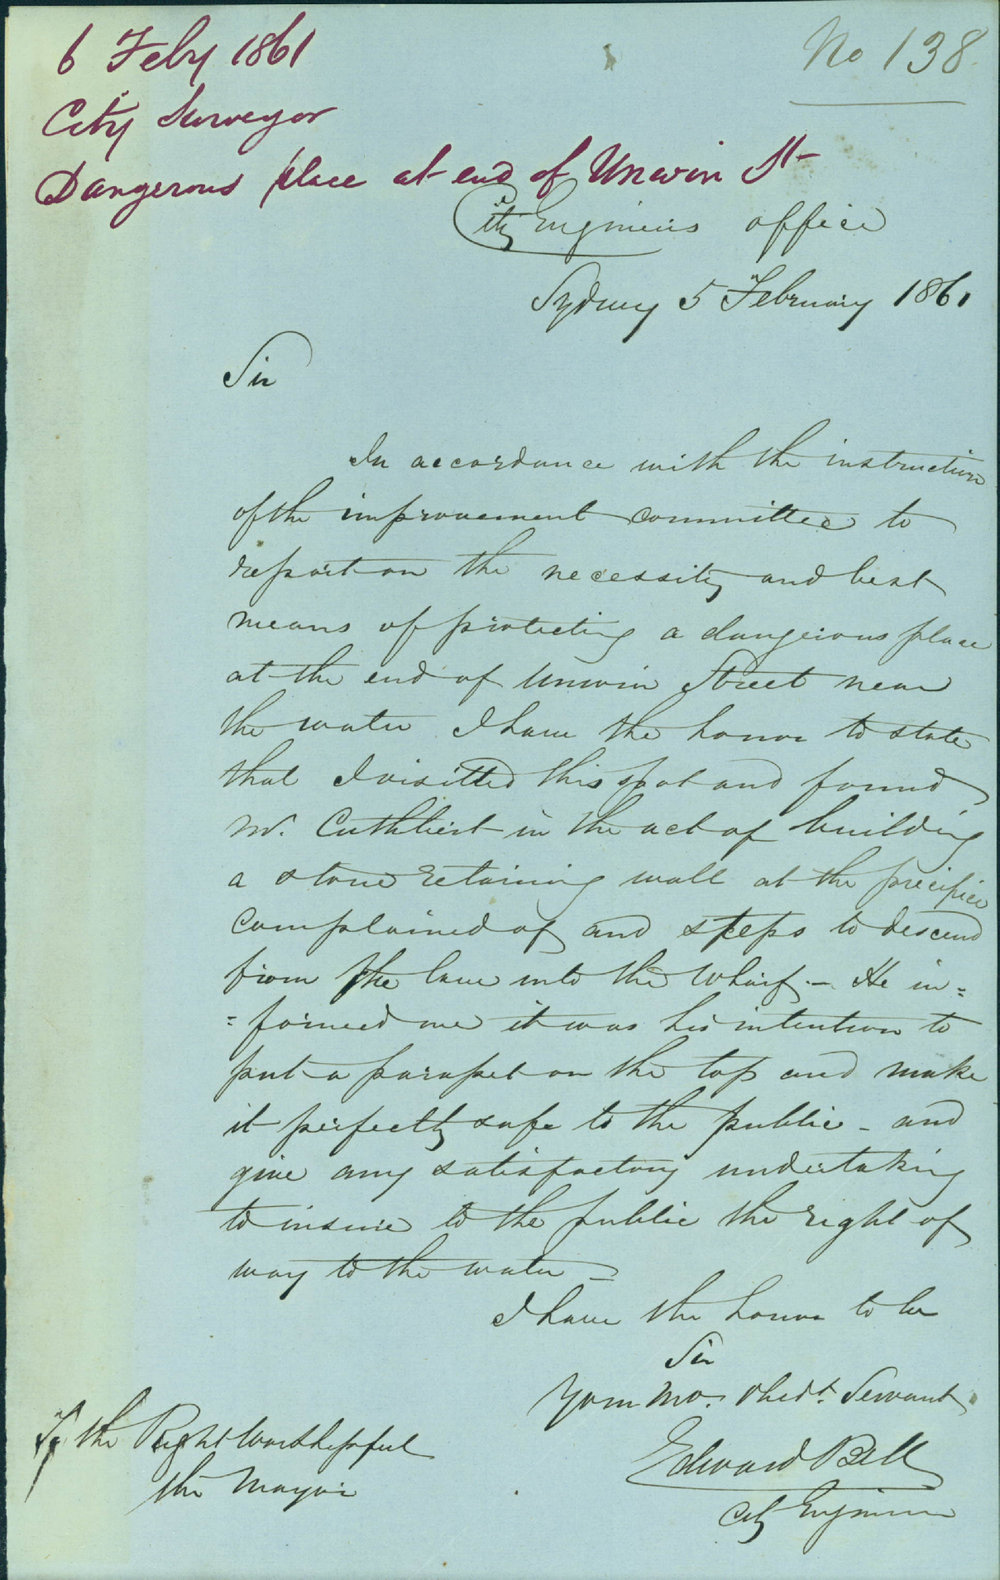 6 Feby 1861
No 138.
City Surveyor
Dangerous place at end of Unwin St
City Engineers office
Sydney 5 February 1861
Sir
In accordance with the instruction
of the improvement committee to
report on the necessity and best
means of protecting a dangerous place
at the end of Unwin Street near
the water I have the honor to state
that I visitted this spot and found
Mr. Cuthbert in the act of building
a stone retaining wall at the precipice
complained of and steps to descend
from the lane into the Wharf. – He in=
=formed me it was his intention to
put a parapet on the top and make
it perfectly safe to the public – and
give any satisfactory undertaking
to insure to the public the right of
way to the water –
I have the honor to be
Sir
Your Mo. Obedt. Servant
Edward Bell
City Engineer
To the Right Worshipful
the Mayor